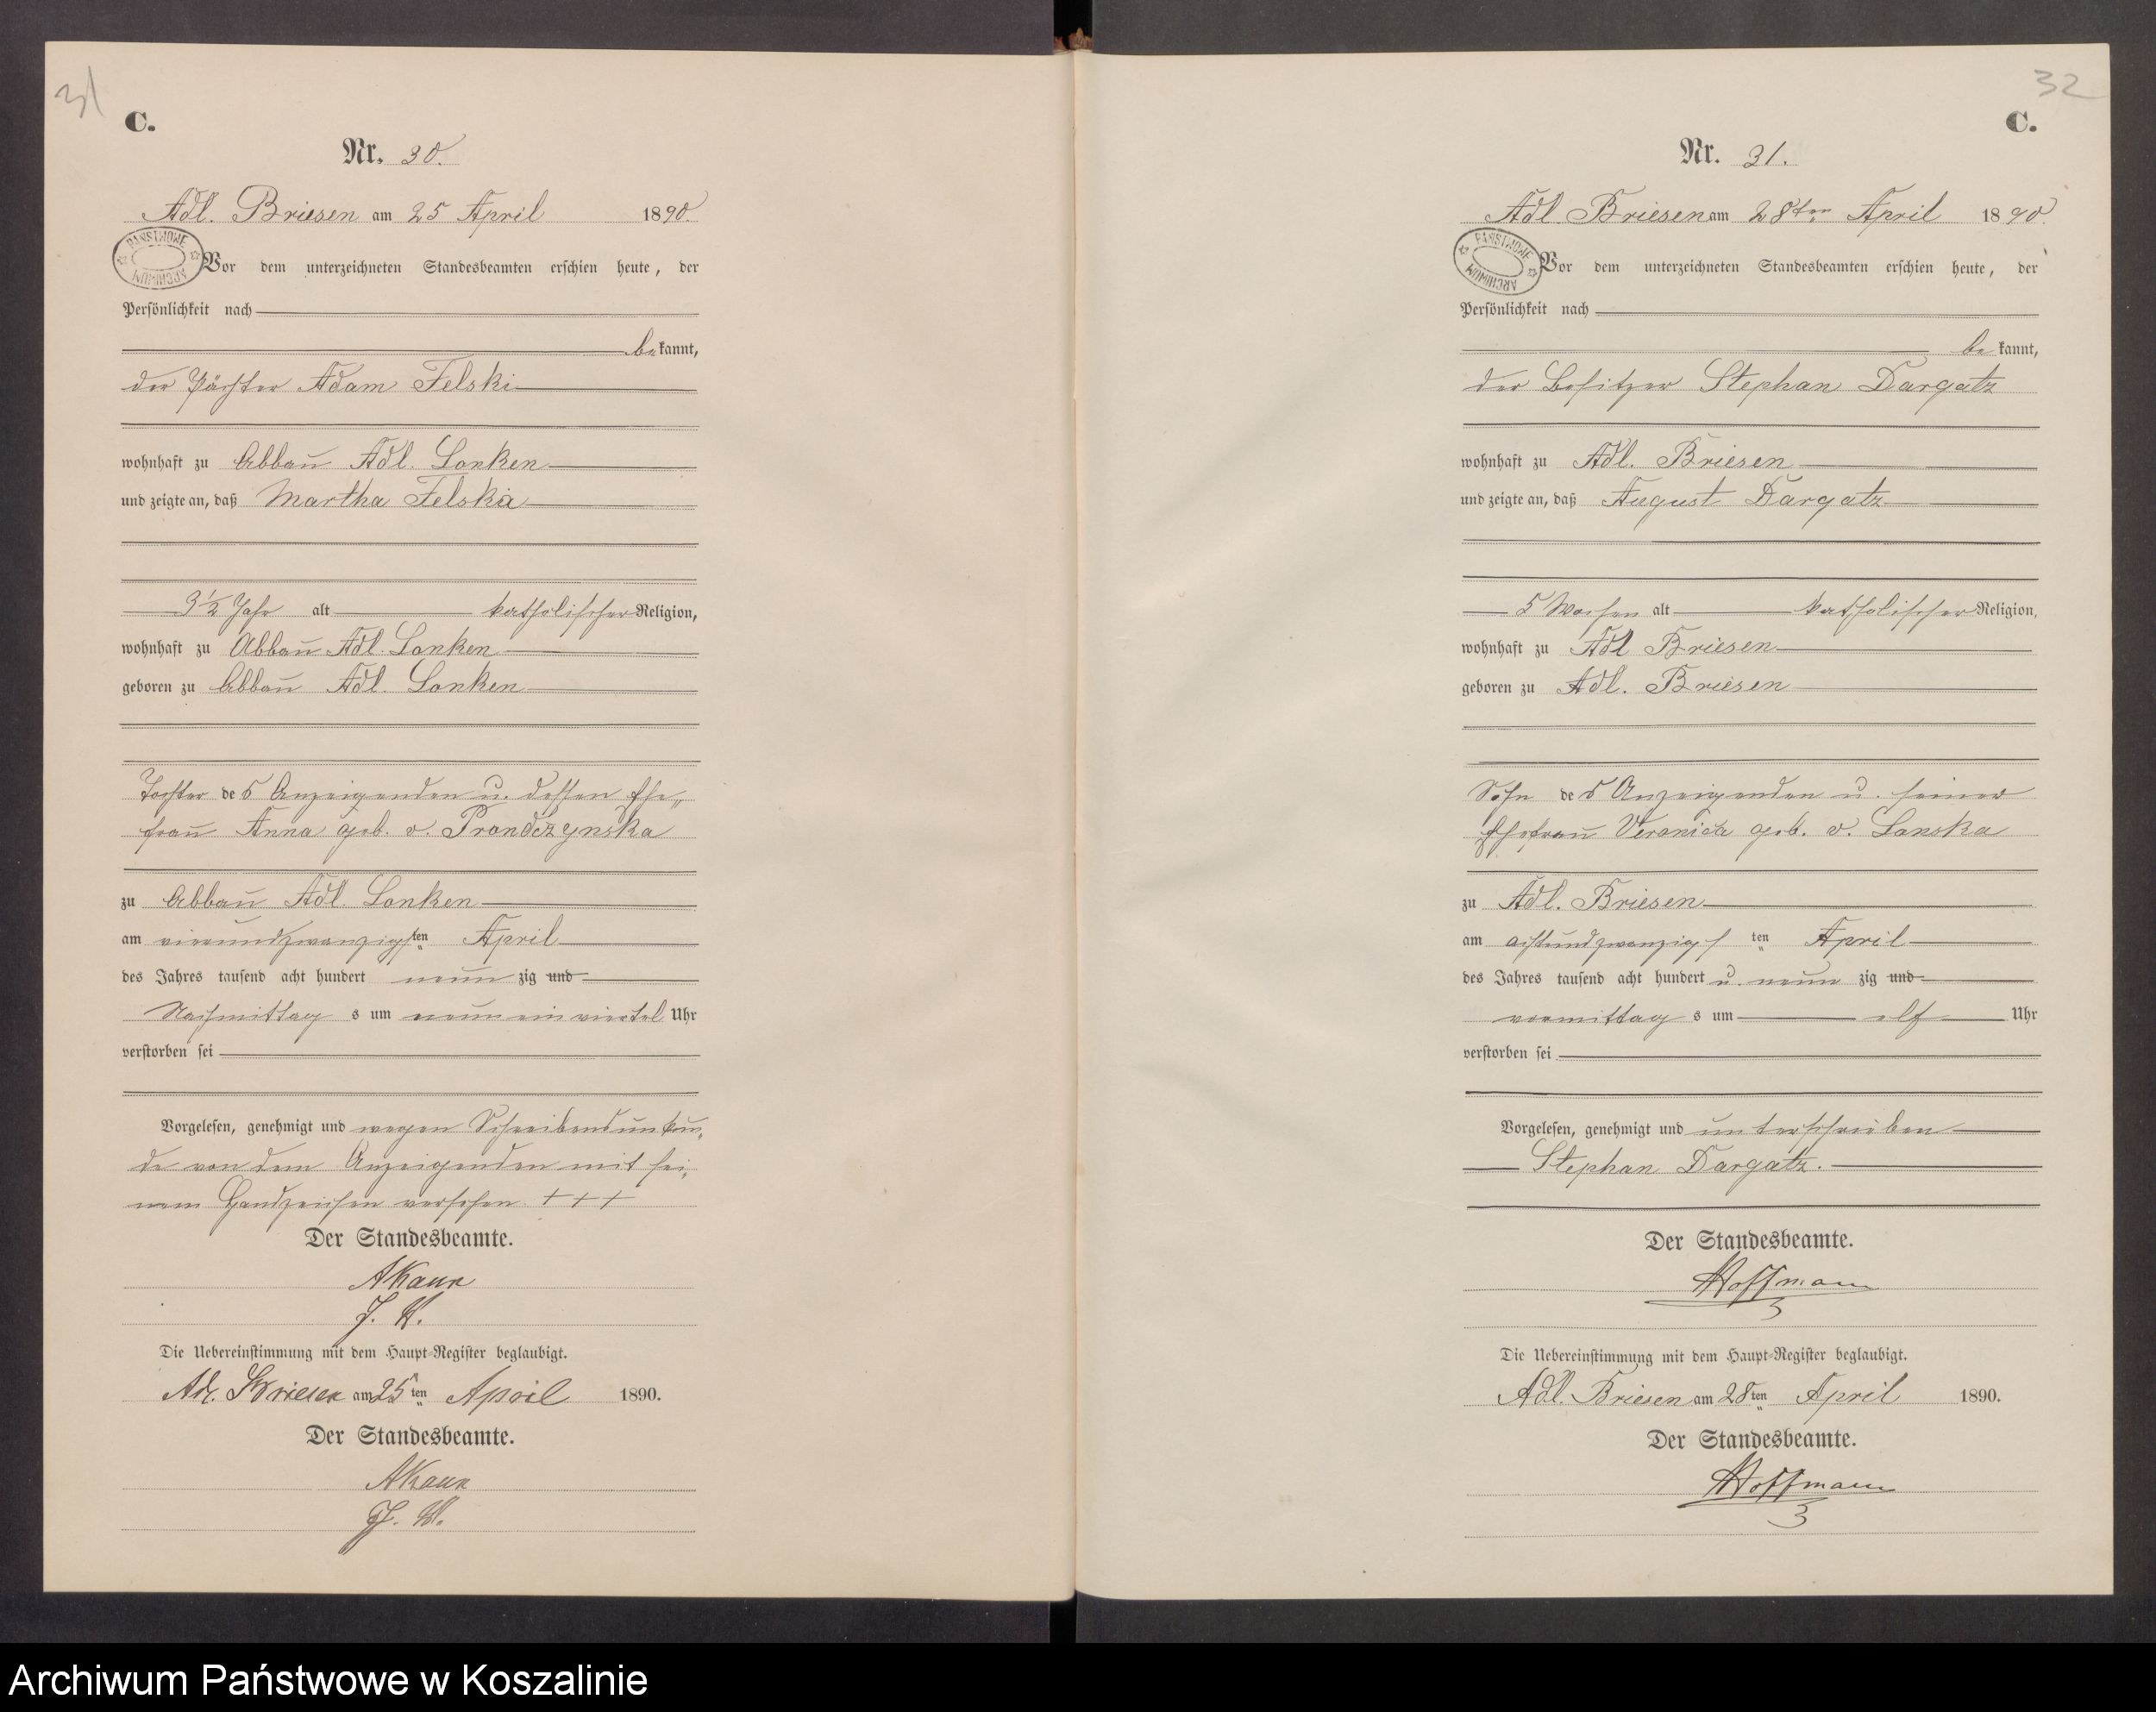 31
C.
Nr. 30.
Adl. Briesen am 25 April 1890.
PAŃSTWOWE ARCHIWUM
Vor dem unterzeichneten Standesbeamten erschien heute, der
Persönlichkeit nach
bekannt,
der Pächter Adam Felski
wohnhaft zu Abbau Adl. Lonken
und zeigte an, daß Martha Felska
3½ Jahr alt katholischer Religion,
wohnhaft zu Abbau Adl. Lonken
geboren zu Abbau Adl. Lonken
Tochter des Anzeigenden u. dessen Ehe„
frau Anna geb. v. Prondczynska
zu Abbau Adl. Lonken
am vierundzwanzigsten April
des Jahres tausend acht hundert neunzig und
Nachmittags um neun ein viertel Uhr
verstorben sei
Vorgelesen, genehmigt und wegen Schreibensunkun„
de von dem Anzeigenden mit sei„
nem Handzeichen versehen +++
Der Standesbeamte.
AKaun
J. V.
Die Uebereinstimmung mit dem Haupt-Register beglaubigt.
Adl. Briesen am 25ten April 1890.
Der Standesbeamte.
AKaun
J. V.
32
C.
Nr. 31.
Adl Briesen am 28ten April 1890.
PAŃSTWOWE ARCHIWUM
Vor dem unterzeichneten Standesbeamten erschien heute, der
Persönlichkeit nach
bekannt,
der Besitzer Stephan Dargatz
wohnhaft zu Adl. Briesen
und zeigte an, daß August Dargatz
5 Wochen alt katholischer Religion,
wohnhaft zu Adl Briesen
geboren zu Adl. Briesen
Sohn des Anzeigenden u. seiner
Ehefrau Veronica geb. v. Lonska
zu Adl. Briesen
am achtundzwanzigsten April
des Jahres tausend acht hundert u. neunzig und
vormittags um elf Uhr
verstorben sei
Vorgelesen, genehmigt und unterschrieben
Stephan Dargatz.
Der Standesbeamte.
Hoffmann
Die Uebereinstimmung mit dem Haupt-Register beglaubigt.
Adl. Briesen am 28ten April 1890.
Der Standesbeamte.
Hoffmann
Archiwum Państwowe w Koszalinie